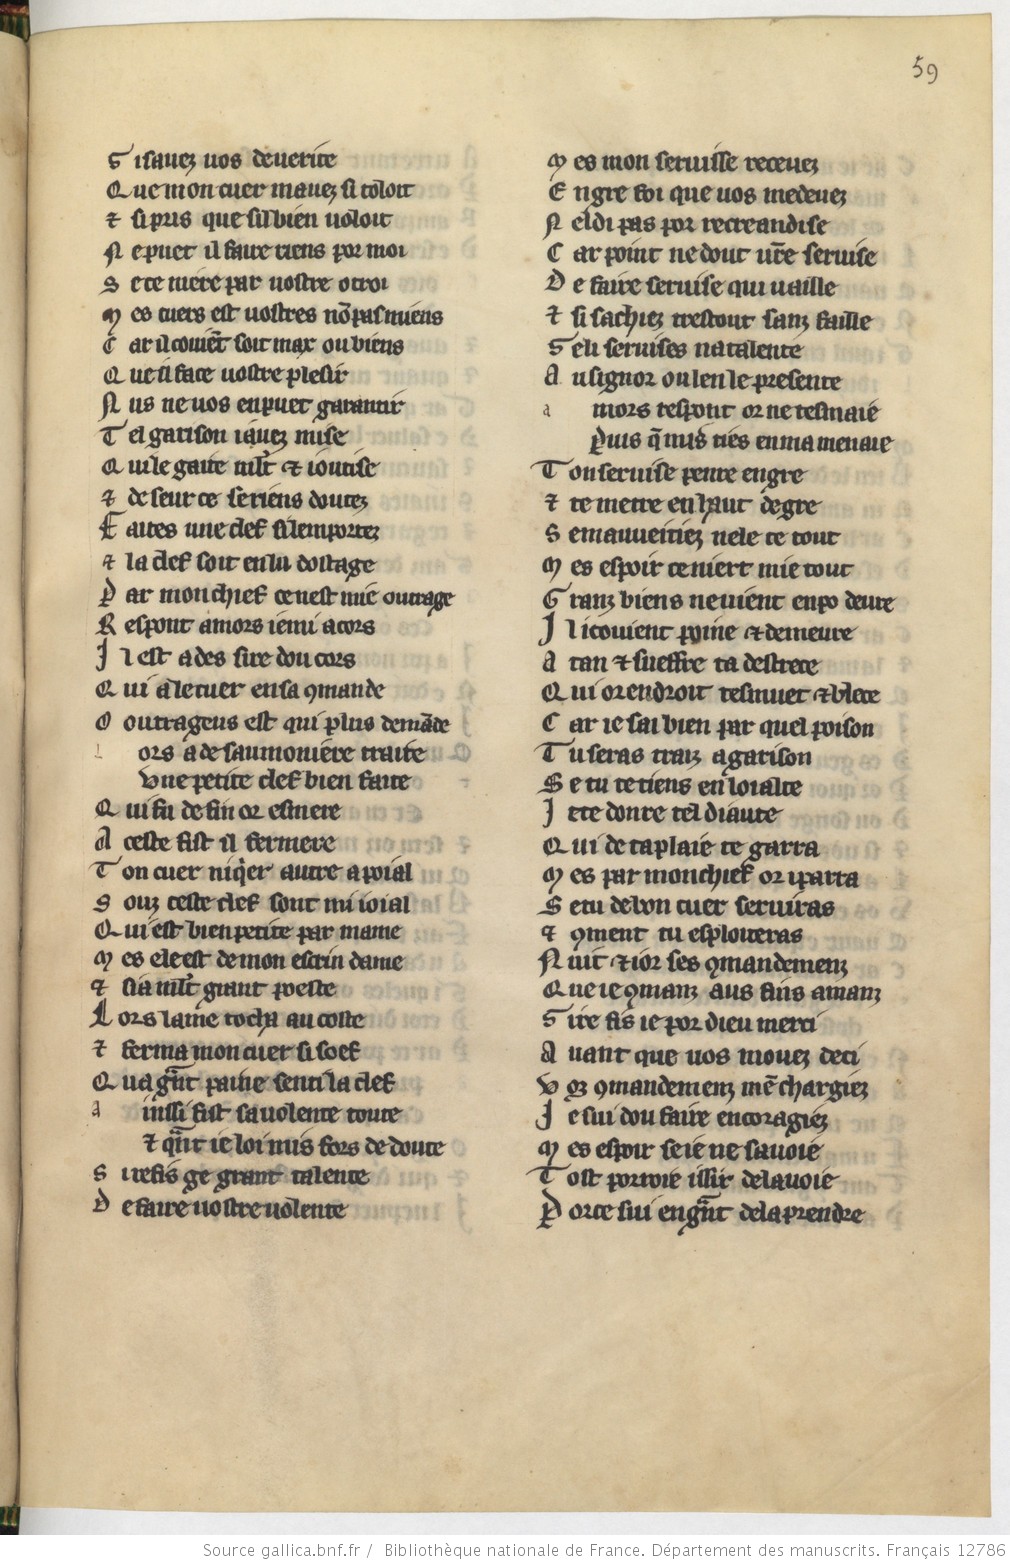 59
S i sauez uos de uerite
Q ue mon cuer mauez si toloit
⁊ si pris que sil bien uoloit
N e puet il faire riens por moi
S e ce niere par uostre otroi
M es cuers est uostres nō pas miens
C ar il couiēt soit max ou biens
Q ue il face uostre plesir
N us ne uos en puet garantir
T el garison i auez mise
Q ui le garde mlt ⁊ ioutise
⁊ de seur ce se riens doutez
F aites une clef si lemportez
⁊ la clef soit en lu dostage
P ar mon chief ce nest mie outrage
R espont amors ie mi acors
I l est ades sire dou cors
Q ui a le cuer en sa ꝯmande
O outrageus est qui plus demāde
l ors a de saumoniere traite
Vne petite clef bien faite
Q ui fu de fin or esmere
A ceste fist il fermere
T on cuer ni qier autre apoial
S ouz ceste clef sont mi ioial
Q ui est bien petite par mame
M es ele est de mon escrin dame
⁊ si a mlt grant poeste
L ors la me tocha au coste
⁊ ferma mon cuer si soef
Q ua gnt paine senti la clef
a inssi fist sa uolente toute
⁊ qnt ie loi mis fors de doute
S ire fis ge grant talente
D e faire uostre uolente
M es mon seruisse receuez
E n gre foi que uos me deuez
N el di pas por recreandise
C ar point ne dout urē seruise
D e faire seruise qui uaille
⁊ si sachiez trestout sanz faille
S e li seruises natalente
A u signor ou len le presente
a mors respont or ne tesmaie
Puis q mis ties en ma menaie
T on seruise penre en gre
⁊ te metre en haut degre
S e mauueitiez nele te tout
M es espoir ce niert mie tout
G ranz biens ne uient en po deure
I l i couient poine ⁊ demeure
A tan ⁊ sueffre ta destrece
Q ui orendroit tesmuet ⁊ blece
C ar ie sai bien par quel poison
T u seras traiz a garison
S e tu te tiens en loialte
I e te donre tel diaute
Q ui de ta plaie te garra
M es par mon chief or i parra
S e tu de bon cuer seruiras
⁊ ꝯment tu esploiteras
N uit ⁊ ior ses ꝯmandemenz
Q ue ie ꝯmanz aus fins amanz
S ire fis ie por dieu merci
A uant que uos mouez deci
V oz ꝯmandemenz mē chargiez
I e sui dou faire encoragiez
M es espoir se ie ne sauoie
T ost porroie issir de la uoie
P or ce sui en gnt de la prendre
Source gallica.bnf.fr / Bibliothèque nationale de France. Département des manuscrits. Français 12786